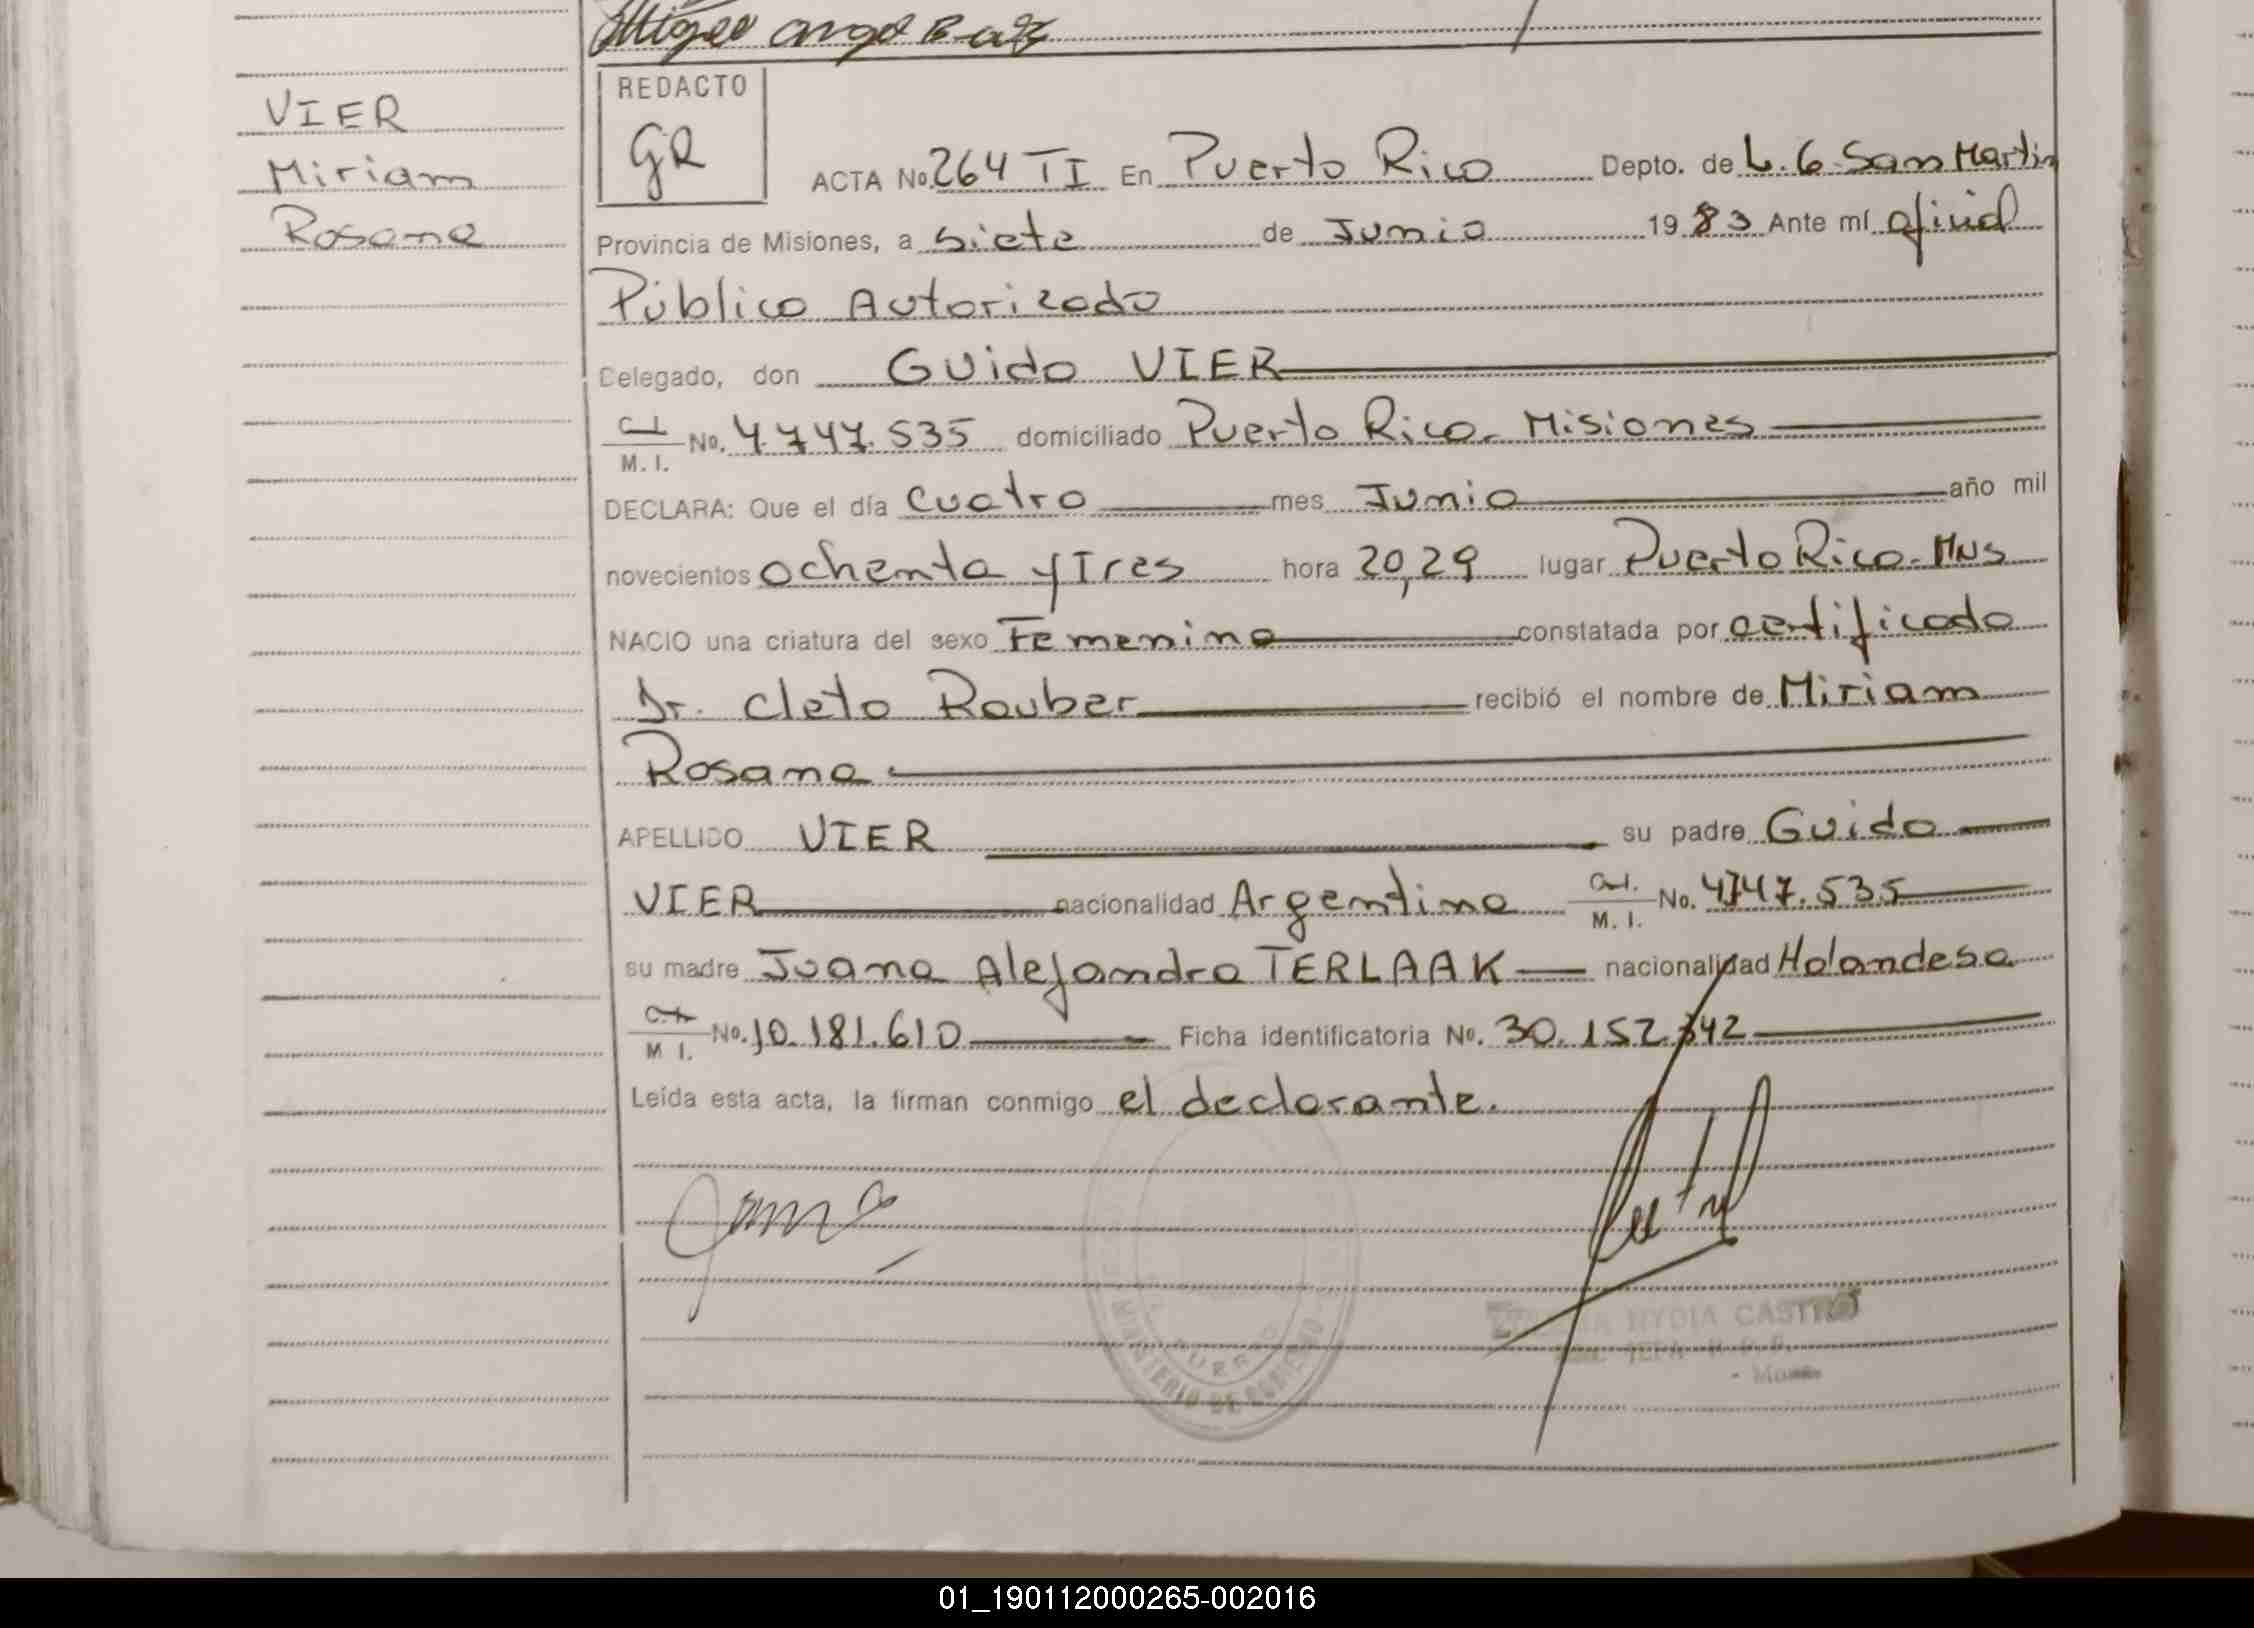 Miguel Angel
REDACTO
GR
VIER
Miriam
Rosana
ACTA No. 264 TI En Puerto Rico Depto. de L. G. San Martin
Provincia de Misiones, a siete de Junio 19 83 Ante mí oficial
Público Autorizado
Delegado, don Guido VIER
C.I. M. I. No. 4.747.535 domiciliado Puerto Rico - Misiones
DECLARA: Que el día cuatro mes Junio año mil
novecientos ochenta y Tres hora 20,29 lugar Puerto Rico - Mns
NACIO una criatura del sexo Femenino constatada por certificado
Dr. Cleto Rauber recibió el nombre de Miriam
Rosana
APELLIDO VIER su padre Guido
VIER nacionalidad Argentina C.I. M. I. No. 4747.535
su madre Juana Alejandra TERLAAK nacionalidad Holandesa
C.I. M I. No. 10.181.610 Ficha identificatoria No. 30.152.342
Leída esta acta, la firman conmigo el declarante.
NYDIA CASTRO
MINISTERIO DE GOBIERNO
01_190112000265-002016